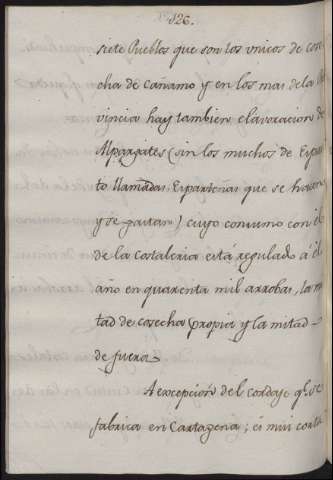 126.
siete Pueblos que son los unicos de cose
cha de cañamo y en los mas de la
vincia hay tambien elavoracion de
Alpargates (sin los muchos de Espar
to llamadas Esparteñas que se hacen
y se gastan) cuyo consumo con el
de la costaleria està regulado à el
año en quarenta mil arrobas, la mi
tad de cosecha propia y la mitad
de fuera.
A excepcion del cordaje qe. se
fabrica en Cartagena; es mui corta